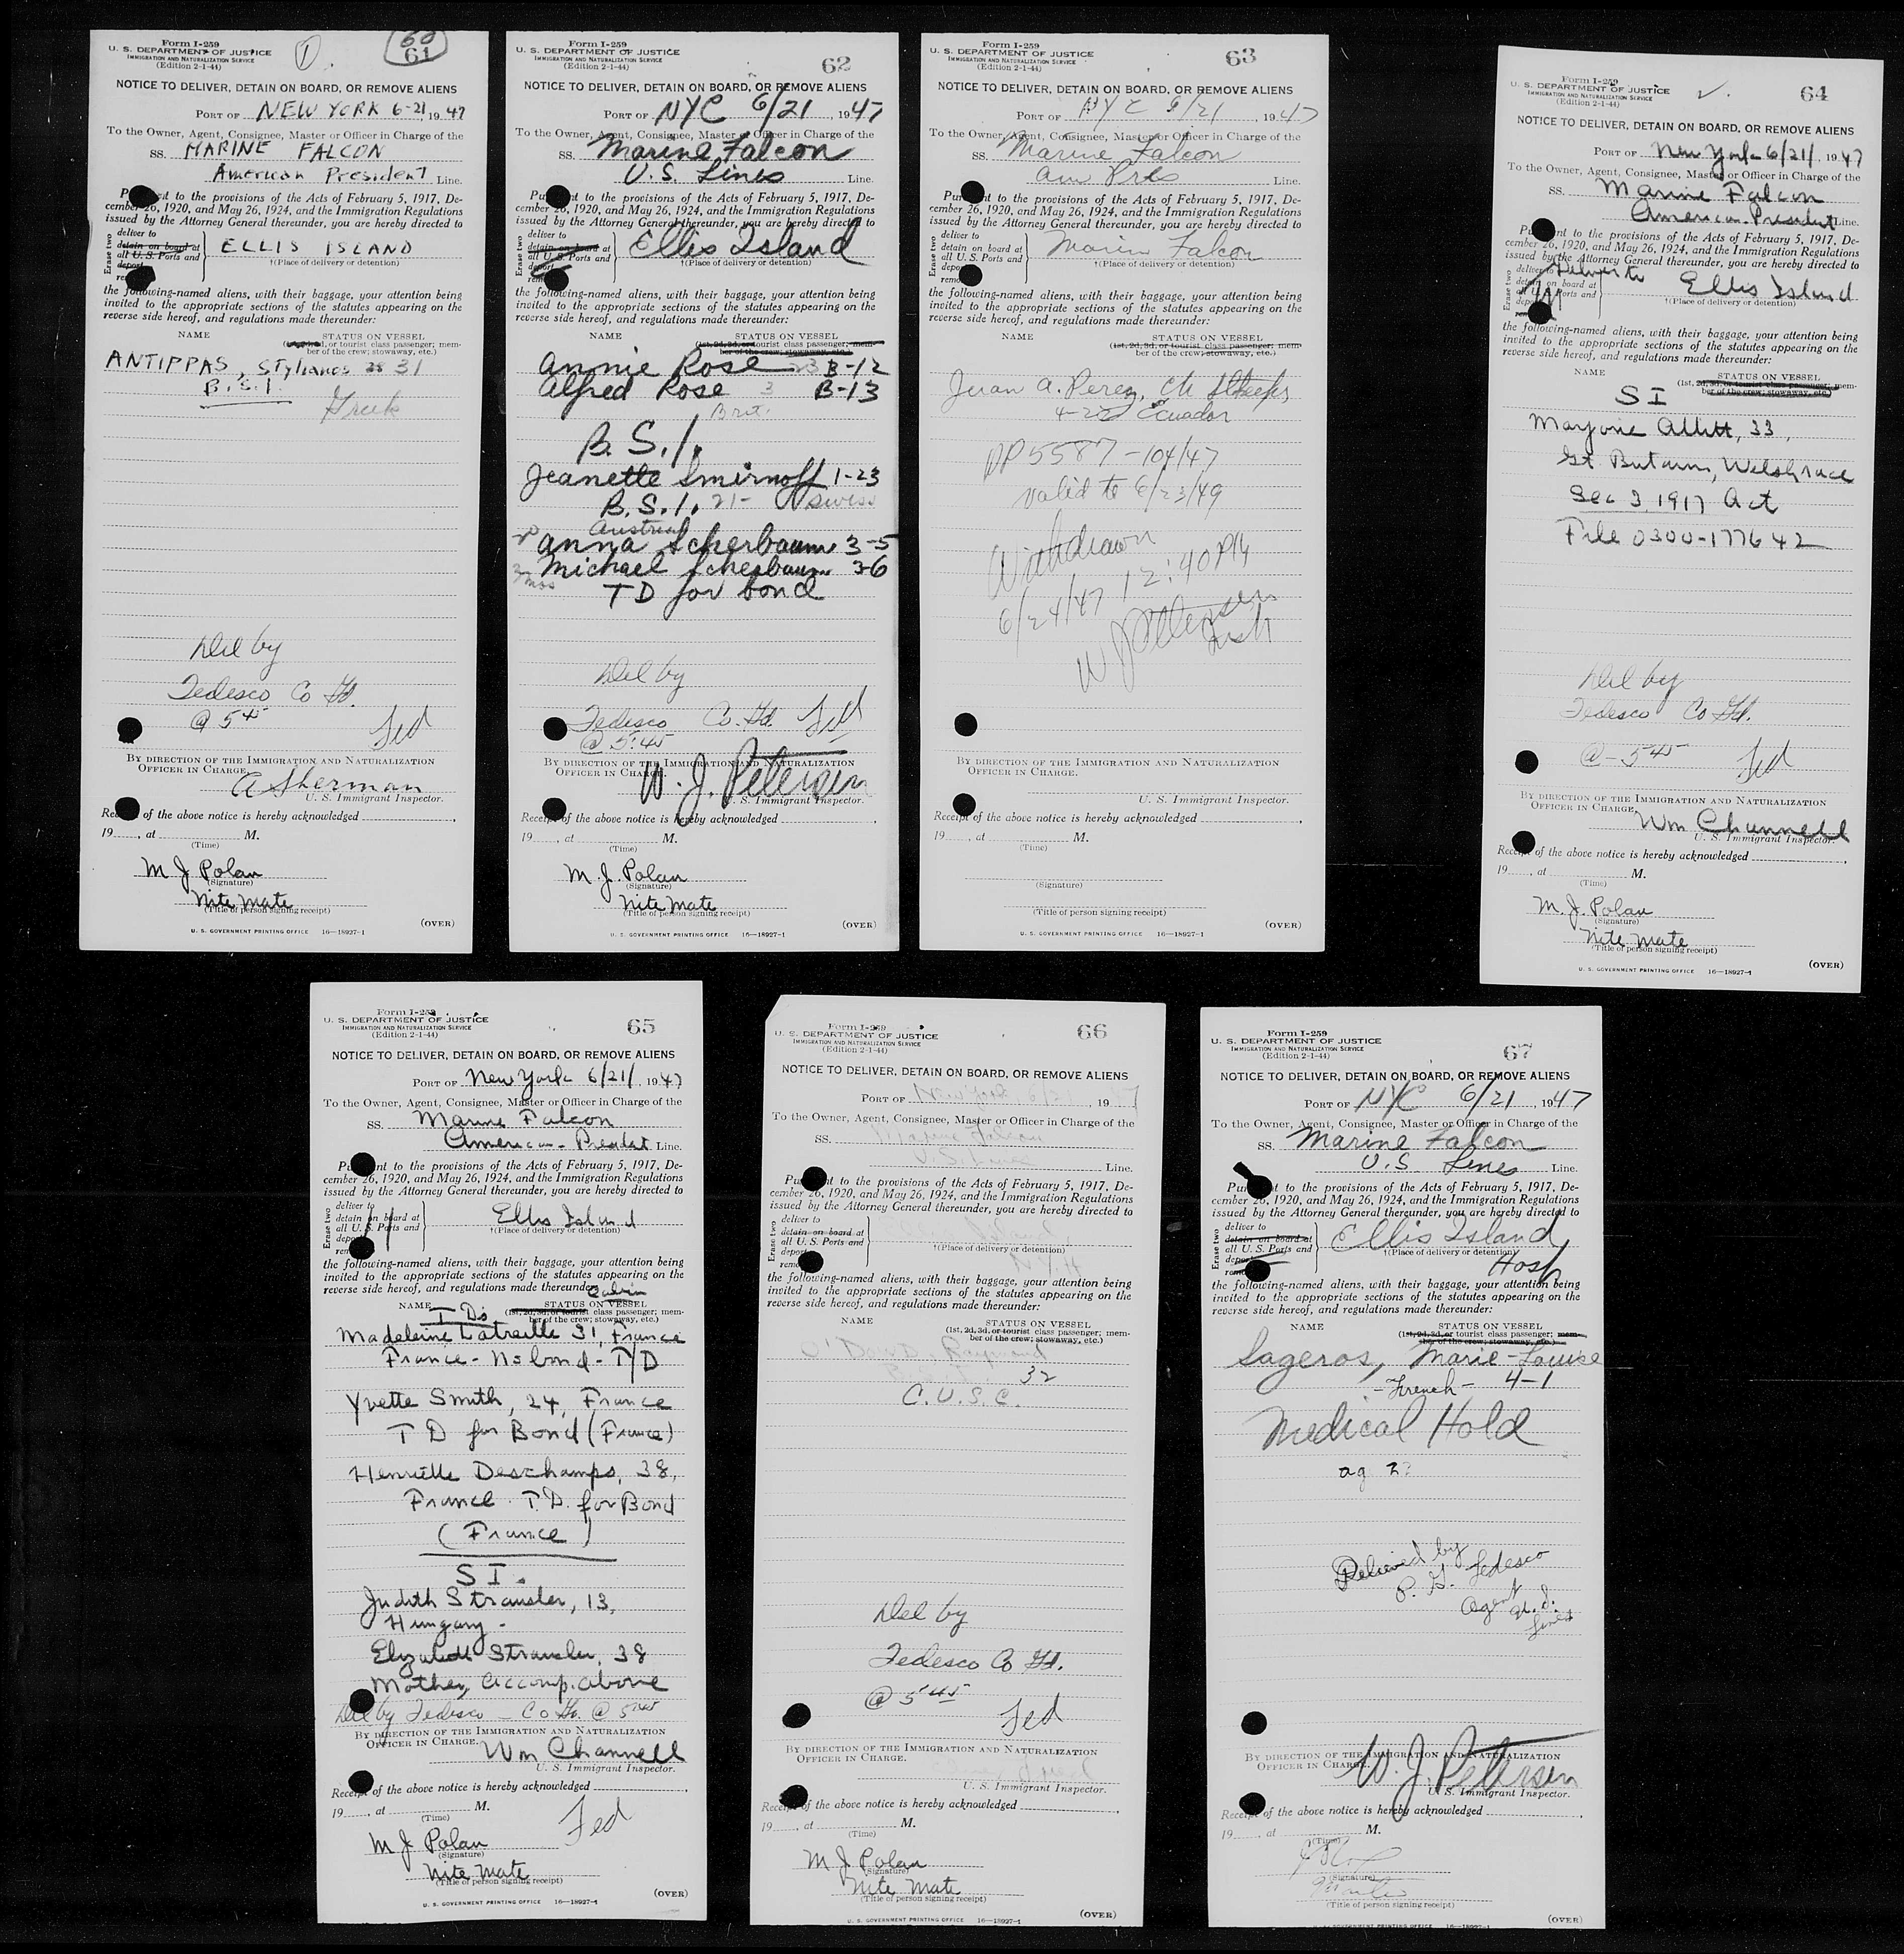 60
61
1
Form I-259
U. S. DEPARTMENT OF JUSTICE
IMMIGRATION AND NATURALIZATION SERVICE
(Edition 2-1-44)
NOTICE TO DELIVER, DETAIN ON BOARD, OR REMOVE ALIENS
PORT OF NEW YORK 6-21, 1947
To the Owner, Agent, Consignee, Master or Officer in Charge of the
SS. MARINE FALCON
American President Line.
Pursuant to the provisions of the Acts of February 5, 1917, De-
cember 26, 1920, and May 26, 1924, and the Immigration Regulations
issued by the Attorney General thereunder, you are hereby directed to
Erase two
deliver to
detain on board at
all U. S. Ports and
deport
ELLIS ISLAND
†(Place of delivery or detention)
the following-named aliens, with their baggage, your attention being
invited to the appropriate sections of the statutes appearing on the
reverse side hereof, and regulations made thereunder:
NAME STATUS ON VESSEL
or tourist class passenger; mem-
ber of the crew; stowaway, etc.)
ANTIPPAS, Stylianos 31
B.S.I.
Greek
Del by
Tedesco Co Gd.
@ 545
Ted
BY DIRECTION OF THE IMMIGRATION AND NATURALIZATION
OFFICER IN CHARGE.
A Sherman
U. S. Immigrant Inspector.
Receipt of the above notice is hereby acknowledged
19 , at M.
(Time)
M J Polan
(Signature)
Nite Mate
(Title of person signing receipt)
(OVER)
U. S. GOVERNMENT PRINTING OFFICE 16—18927-1
Form I-259
U. S. DEPARTMENT OF JUSTICE
IMMIGRATION AND NATURALIZATION SERVICE
(Edition 2-1-44)
62
NOTICE TO DELIVER, DETAIN ON BOARD, OR REMOVE ALIENS
PORT OF NYC 6/21, 1947
To the Owner, Agent, Consignee, Master or Officer in Charge of the
SS. Marine Falcon
U.S. Lines Line.
Pursuant to the provisions of the Acts of February 5, 1917, De-
cember 26, 1920, and May 26, 1924, and the Immigration Regulations
issued by the Attorney General thereunder, you are hereby directed to
Erase two
deliver to
detain on board at
all U. S. Ports and
deport
Ellis Island
†(Place of delivery or detention)
the following-named aliens, with their baggage, your attention being
invited to the appropriate sections of the statutes appearing on the
reverse side hereof, and regulations made thereunder:
NAME STATUS ON VESSEL
(1st, 2d, 3d, or tourist class passenger; mem-
ber of the crew; stowaway, etc.)
Annie Rose 23 B-12
Alfred Rose 3 B-13
Brit.
B.S.I.
Jeanette Smirnoff 1-23
B.S.I. 21- Swiss
Austrian
Anna Scherbaum 3-5
Michael Scherbaum 3-6
3 mos
TD for bond
Del by
Tedesco Co. Gd. Ted
@ 5:45
BY DIRECTION OF THE IMMIGRATION AND NATURALIZATION
OFFICER IN CHARGE.
W. J. Petersen
U. S. Immigrant Inspector.
Receipt of the above notice is hereby acknowledged
19 , at M.
(Time)
M. J. Polan
(Signature)
Nite Mate
(Title of person signing receipt)
(OVER)
U. S. GOVERNMENT PRINTING OFFICE 16—18927-1
Form I-259
U. S. DEPARTMENT OF JUSTICE
IMMIGRATION AND NATURALIZATION SERVICE
(Edition 2-1-44)
63
NOTICE TO DELIVER, DETAIN ON BOARD, OR REMOVE ALIENS
PORT OF NYC 6/21, 1947
To the Owner, Agent, Consignee, Master or Officer in Charge of the
SS. Marine Falcon
Am Pres Line.
Pursuant to the provisions of the Acts of February 5, 1917, De-
cember 26, 1920, and May 26, 1924, and the Immigration Regulations
issued by the Attorney General thereunder, you are hereby directed to
Erase two
deliver to
detain on board at
all U. S. Ports and
deport
Marine Falcon
†(Place of delivery or detention)
the following-named aliens, with their baggage, your attention being
invited to the appropriate sections of the statutes appearing on the
reverse side hereof, and regulations made thereunder:
NAME STATUS ON VESSEL
(1st, 2d, 3d, or tourist class passenger; mem-
ber of the crew; stowaway, etc.)
Juan A. Perez, Ch
Ecuador
PP5587-104/47
valid to 6/23/49
Withdrawn
6/24/47 12:40 PM
W J Petersen
Insp
BY DIRECTION OF THE IMMIGRATION AND NATURALIZATION
OFFICER IN CHARGE.
U. S. Immigrant Inspector.
Receipt of the above notice is hereby acknowledged
19 , at M.
(Time)
(Signature)
(Title of person signing receipt)
(OVER)
U. S. GOVERNMENT PRINTING OFFICE 16—18927-1
Form I-259
U. S. DEPARTMENT OF JUSTICE
IMMIGRATION AND NATURALIZATION SERVICE
(Edition 2-1-44)
64
NOTICE TO DELIVER, DETAIN ON BOARD, OR REMOVE ALIENS
PORT OF New York 6/21/, 1947
To the Owner, Agent, Consignee, Master or Officer in Charge of the
SS. Marine Falcon
American President Line.
Pursuant to the provisions of the Acts of February 5, 1917, De-
cember 26, 1920, and May 26, 1924, and the Immigration Regulations
issued by the Attorney General thereunder, you are hereby directed to
Erase two
deliver to Deliver to
detain on board at
Ports and
Ellis Island
†(Place of delivery or detention)
the following-named aliens, with their baggage, your attention being
invited to the appropriate sections of the statutes appearing on the
reverse side hereof, and regulations made thereunder:
NAME STATUS ON VESSEL
(1st, 2d, 3d, or tourist class passenger; mem-
ber of the crew; stowaway, etc.)
SI
Marjorie Allitt, 33,
Gt. Britain, Welsh race
Sec 3 1917 Act
File 0300-177642
Del by
Tedesco Co Gd.
@ - 545 Ted
BY DIRECTION OF THE IMMIGRATION AND NATURALIZATION
OFFICER IN CHARGE.
Wm Channell
U. S. Immigrant Inspector.
Receipt of the above notice is hereby acknowledged
19 , at M.
(Time)
M. J. Polan
(Signature)
Nite Mate
(Title of person signing receipt)
(OVER)
U. S. GOVERNMENT PRINTING OFFICE 16—18927-1
Form I-259
U. S. DEPARTMENT OF JUSTICE
IMMIGRATION AND NATURALIZATION SERVICE
(Edition 2-1-44)
65
NOTICE TO DELIVER, DETAIN ON BOARD, OR REMOVE ALIENS
PORT OF New York 6/21/, 1947
To the Owner, Agent, Consignee, Master or Officer in Charge of the
SS. Marine Falcon
American President Line.
Pursuant to the provisions of the Acts of February 5, 1917, De-
cember 26, 1920, and May 26, 1924, and the Immigration Regulations
issued by the Attorney General thereunder, you are hereby directed to
Erase two
deliver to
detain on board at
all U. S. Ports and
deport
Ellis Island
†(Place of delivery or detention)
the following-named aliens, with their baggage, your attention being
invited to the appropriate sections of the statutes appearing on the
reverse side hereof, and regulations made thereunder:
Cabin
NAME STATUS ON VESSEL
(1st, 2d, 3d, or tourist class passenger; mem-
ber of the crew; stowaway, etc.)
T Ds
Madeleine Latreille 31, France
France - No bond - T/D
Yvette Smith, 24, France
T D for Bond (France)
Henriette Deschamps, 38,
France T.D. for Bond
(France)
S I.
Judith Strausler, 13,
Hungary -
Elizabeth Strausler, 38
Mother, accomp. above
Del by Tedesco - Co Gd. @ 545
BY DIRECTION OF THE IMMIGRATION AND NATURALIZATION
OFFICER IN CHARGE.
Wm Channell
U. S. Immigrant Inspector.
Receipt of the above notice is hereby acknowledged
19 , at M.
(Time)
Ted
M J Polan
(Signature)
Nite Mate
(Title of person signing receipt)
(OVER)
U. S. GOVERNMENT PRINTING OFFICE 16—18927-1
Form I-259
U. S. DEPARTMENT OF JUSTICE
IMMIGRATION AND NATURALIZATION SERVICE
(Edition 2-1-44)
66
NOTICE TO DELIVER, DETAIN ON BOARD, OR REMOVE ALIENS
PORT OF New York 6/21, 1947
To the Owner, Agent, Consignee, Master or Officer in Charge of the
SS. Marine Falcon
U.S. Lines Line.
Pursuant to the provisions of the Acts of February 5, 1917, De-
cember 26, 1920, and May 26, 1924, and the Immigration Regulations
issued by the Attorney General thereunder, you are hereby directed to
Erase two
deliver to
detain on board at
all U. S. Ports and
deport
Island
†(Place of delivery or detention)
N.Y.H
the following-named aliens, with their baggage, your attention being
invited to the appropriate sections of the statutes appearing on the
reverse side hereof, and regulations made thereunder:
NAME STATUS ON VESSEL
(1st, 2d, 3d, or tourist class passenger; mem-
ber of the crew; stowaway, etc.)
Raymond
B.S.I. 32
C.U.S.C.
Del by
Tedesco Co Gd.
@ 545
Ted
BY DIRECTION OF THE IMMIGRATION AND NATURALIZATION
OFFICER IN CHARGE.
U. S. Immigrant Inspector.
Receipt of the above notice is hereby acknowledged
19 , at M.
(Time)
M J Polan
(Signature)
Nite Mate
(Title of person signing receipt)
(OVER)
U. S. GOVERNMENT PRINTING OFFICE 16—18927-1
Form I-259
U. S. DEPARTMENT OF JUSTICE
IMMIGRATION AND NATURALIZATION SERVICE
(Edition 2-1-44)
67
NOTICE TO DELIVER, DETAIN ON BOARD, OR REMOVE ALIENS
PORT OF NYC 6/21, 1947
To the Owner, Agent, Consignee, Master or Officer in Charge of the
SS. Marine Falcon
U.S. Lines Line.
Pursuant to the provisions of the Acts of February 5, 1917, De-
cember 26, 1920, and May 26, 1924, and the Immigration Regulations
issued by the Attorney General thereunder, you are hereby directed to
Erase two
deliver to
detain on board at
all U. S. Ports and
deport
Ellis Island,
†(Place of delivery or detention)
Hosp
the following-named aliens, with their baggage, your attention being
invited to the appropriate sections of the statutes appearing on the
reverse side hereof, and regulations made thereunder:
NAME STATUS ON VESSEL
(1st, 2d, 3d, or tourist class passenger; mem-
ber of the crew; stowaway, etc.)
Sageros, Marie-Louise
- French - 4-1
Medical Hold
Relieved by
P. G. Tedesco
Agent U.S.
Lines
BY DIRECTION OF THE IMMIGRATION AND NATURALIZATION
OFFICER IN CHARGE.
W. J. Petersen
U. S. Immigrant Inspector.
Receipt of the above notice is hereby acknowledged
19 , at M.
(Time)
(Signature)
(Title of person signing receipt)
(OVER)